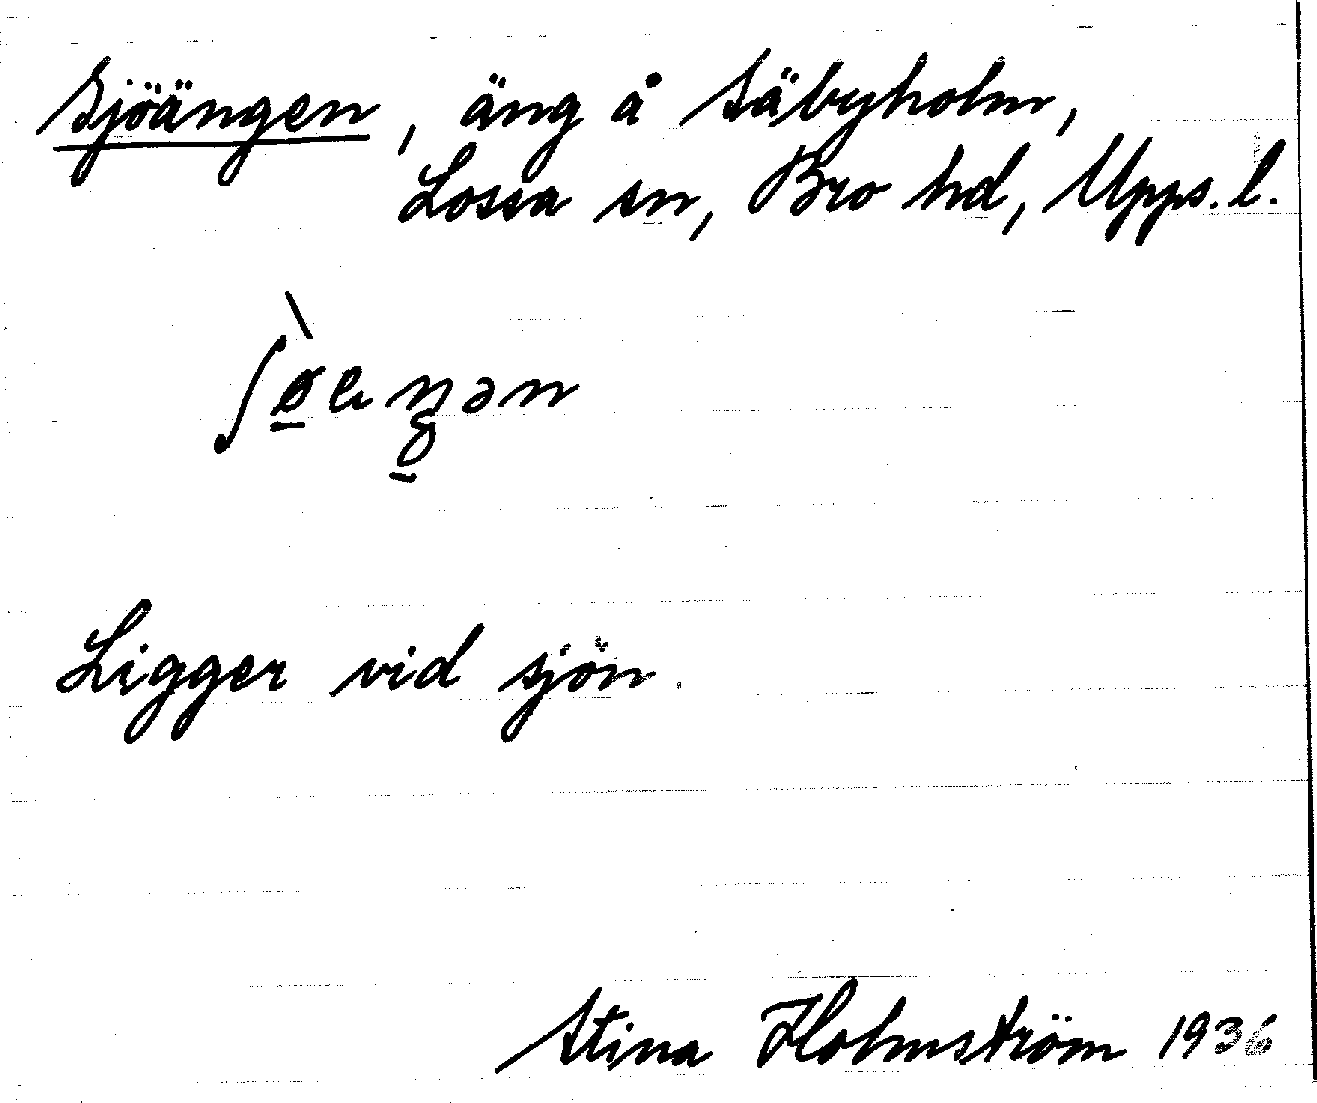 Sjöängen, äng å Säbyholm,
Lossa sn, Bro hd, Upps. l.
Ligger vid sjön.
Stina Holmström 1936